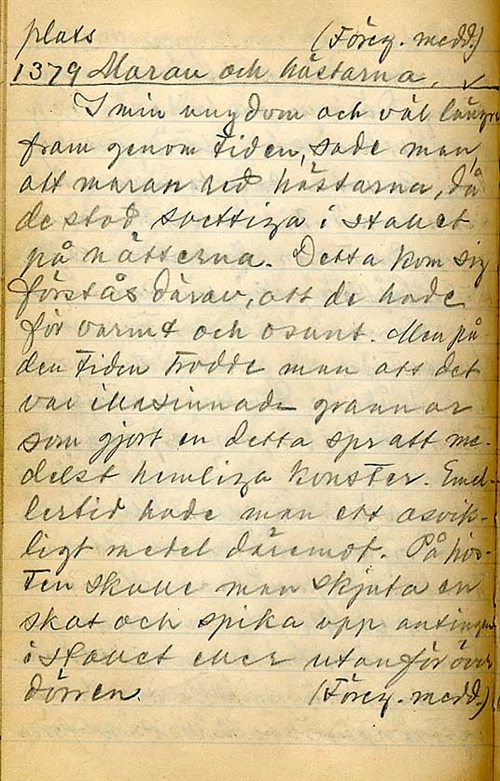 plats (Föreg. medd.)
1379 Maran och hästarna.
I min ungdom och väl längre
fram genom tiden, sade man
att maran red hästarna, då
de stod svettiga i stallet
på nätterna. Detta kom sig
förstås därav, att de hade
för varmt och osunt. Men på
den tiden trodde man att det
var illasinnade grannar
som gjort en detta spratt me-
delst hemliga konster. Emel-
lertid hade man ett osvik-
ligt medel däremot. På hös-
ten skulle man skjuta en
skat och spika upp antingen
i stallet eller utanför över
dörren. (Föreg. medd.)